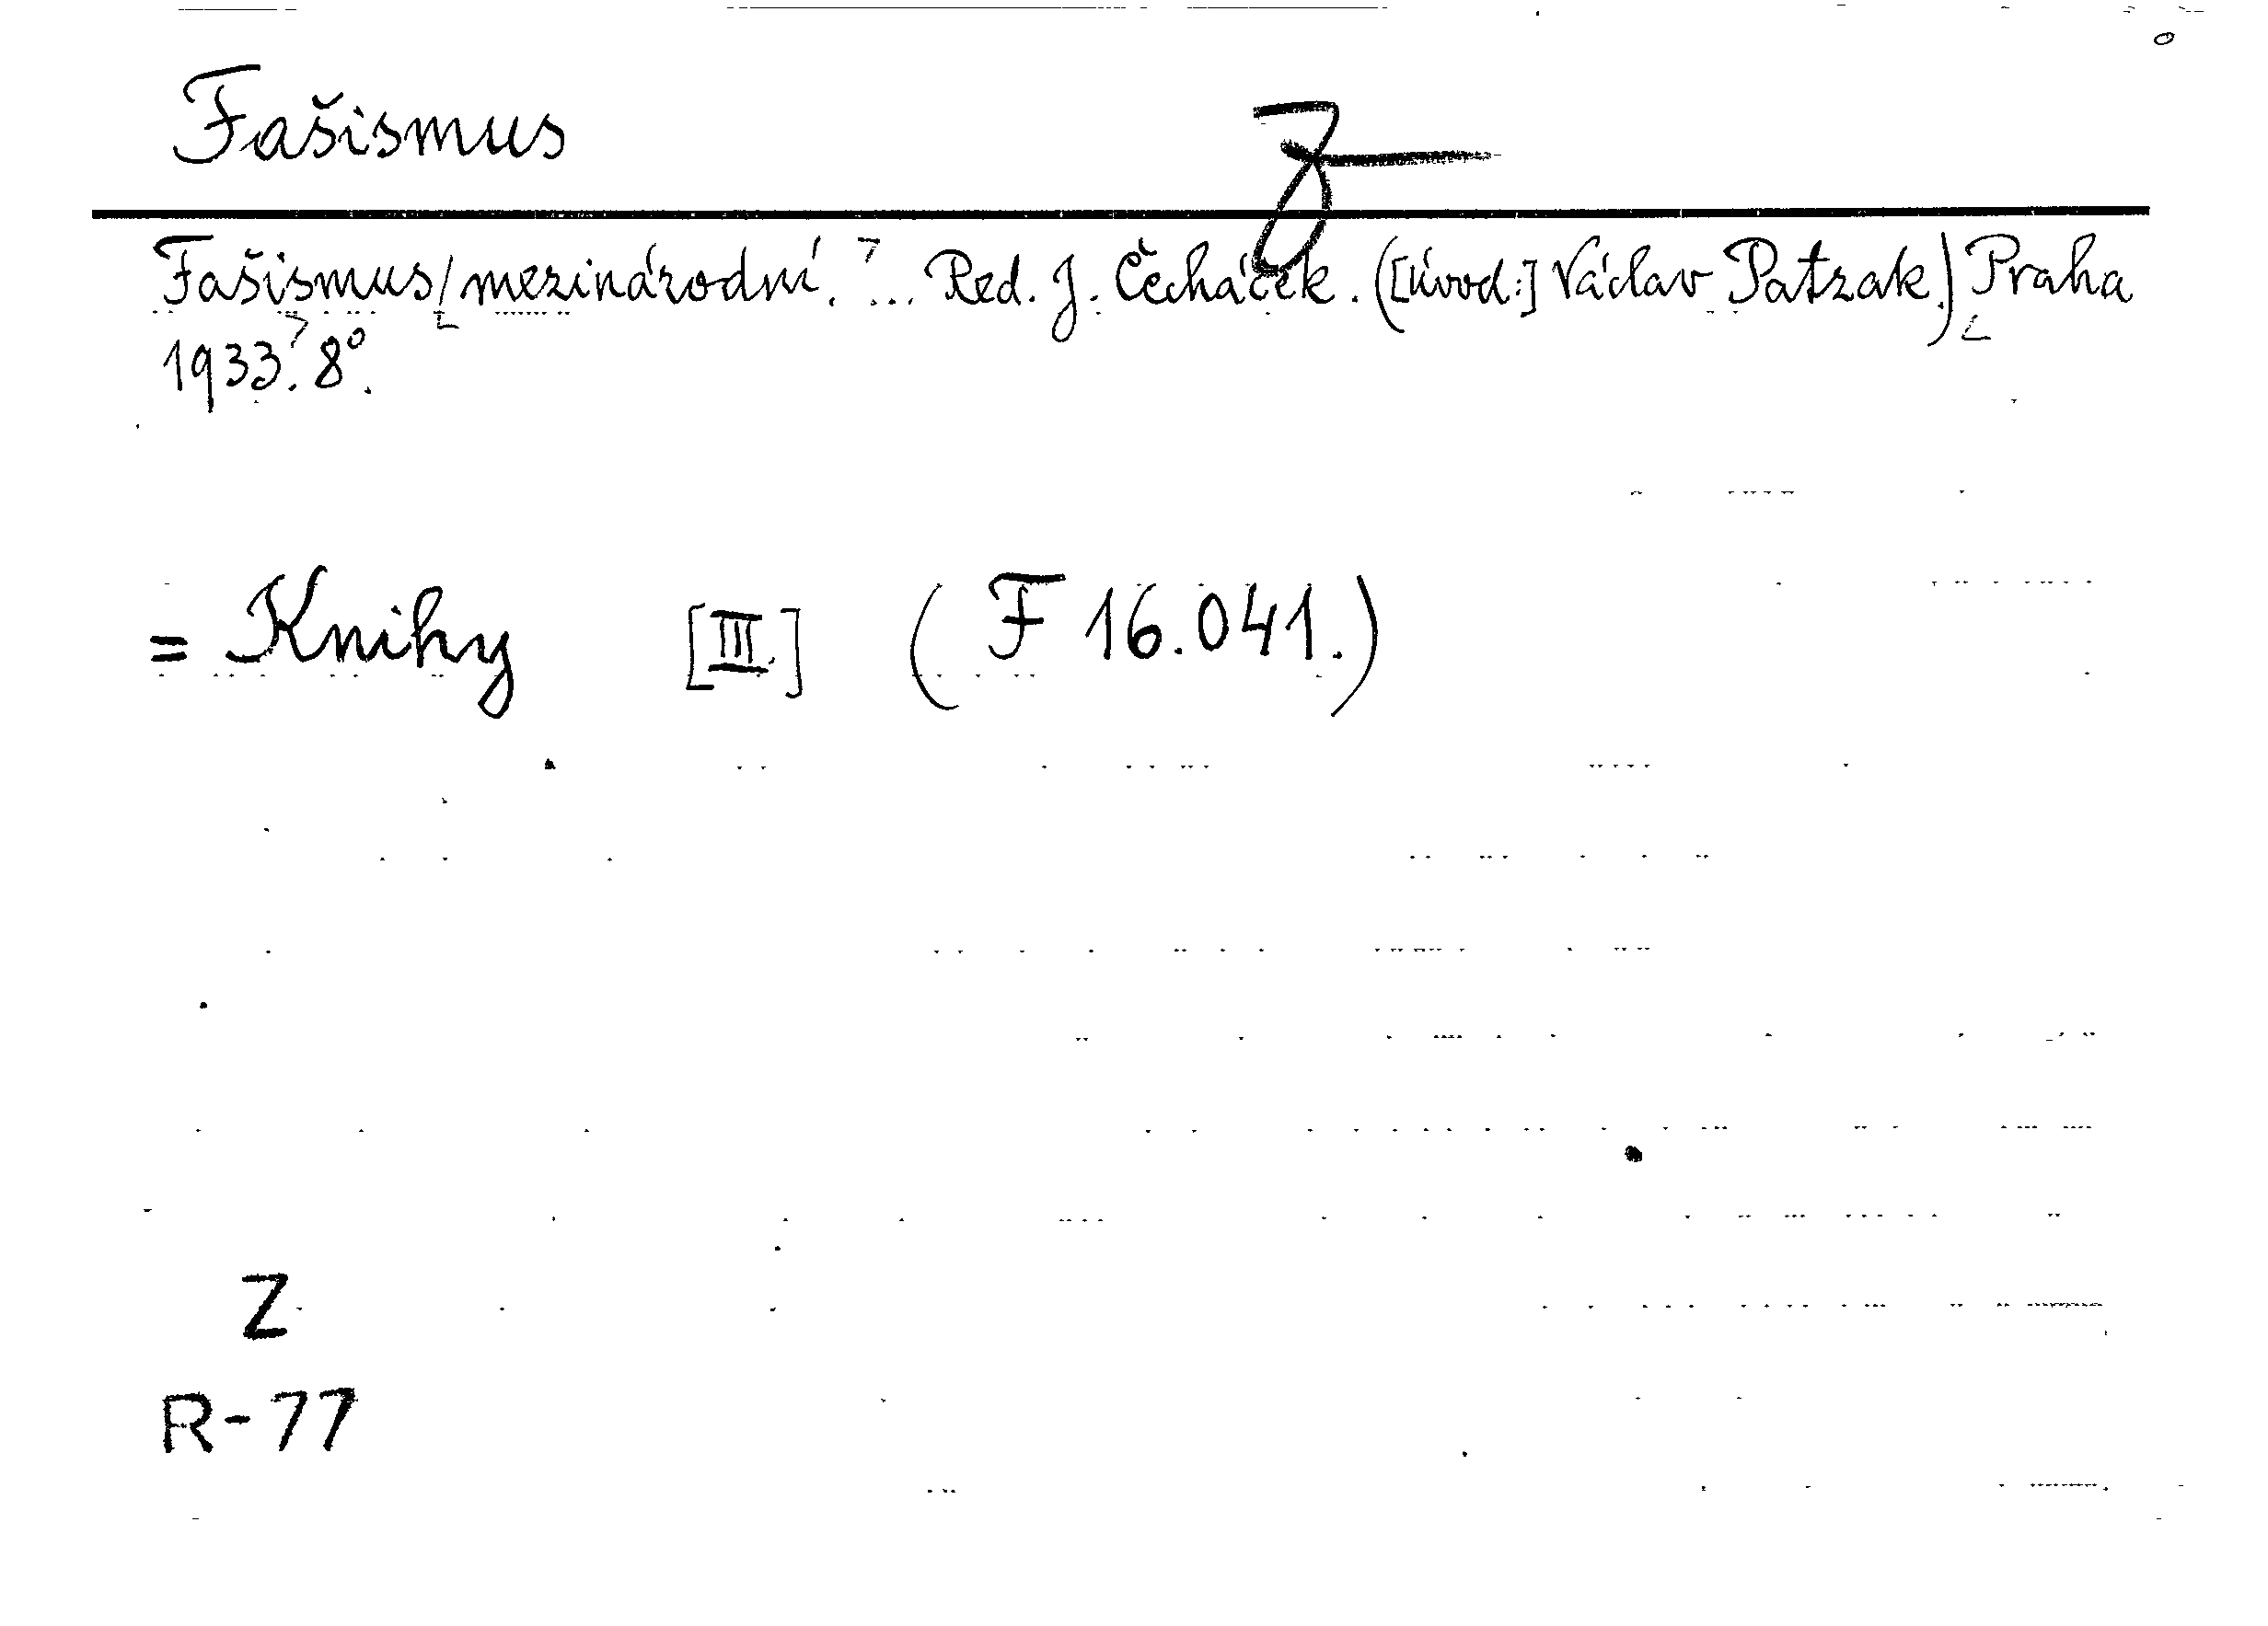 Fašismus
Fašismus/mezinárodní. ... Red. J. Čecháček. ([úvod:] Václav Patzak.) Praha
1933. 8°.
= Knihy [III.] (F 16.041.)
Z
R-77